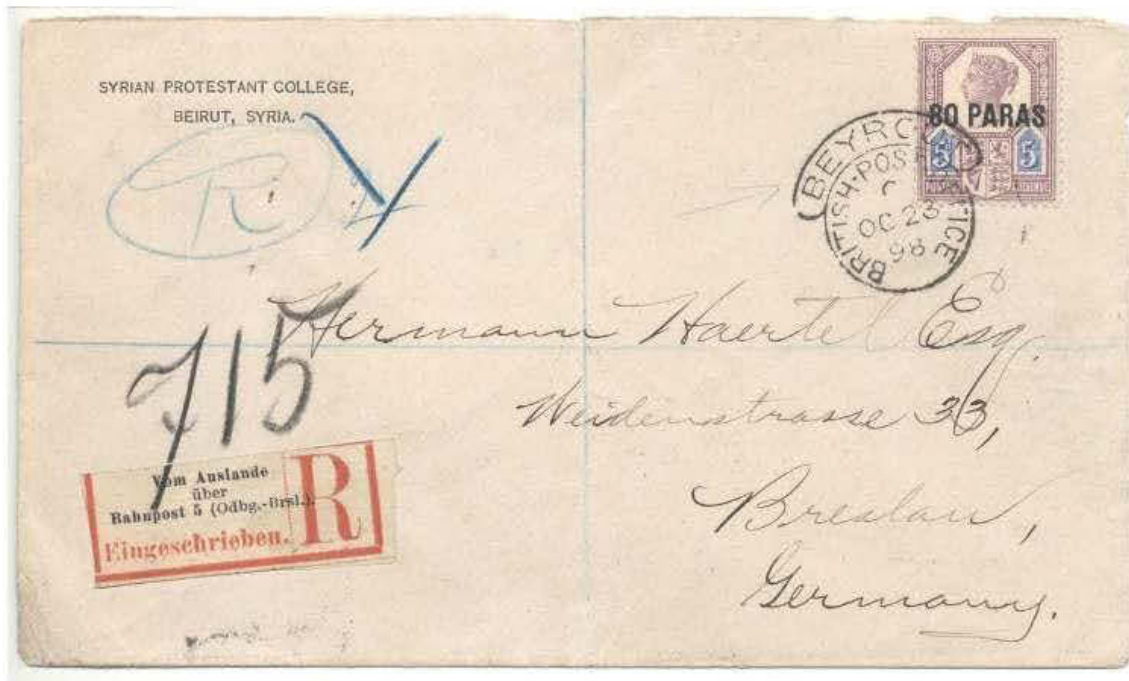 SYRIAN PROTESTANT COLLEGE,
BEIRUT, SYRIA.
R
80 PARAS
5 5
BEYRO
BRITISH-POST OFFICE
C
OC 23
98
Hermann Haertel Esq.
715
Weidenstrasse 33,
Breslau,
Germany.
Vom Auslande
über
Bahnpost 5 (Odbg.-Brsl.).
Eingeschrieben.
R